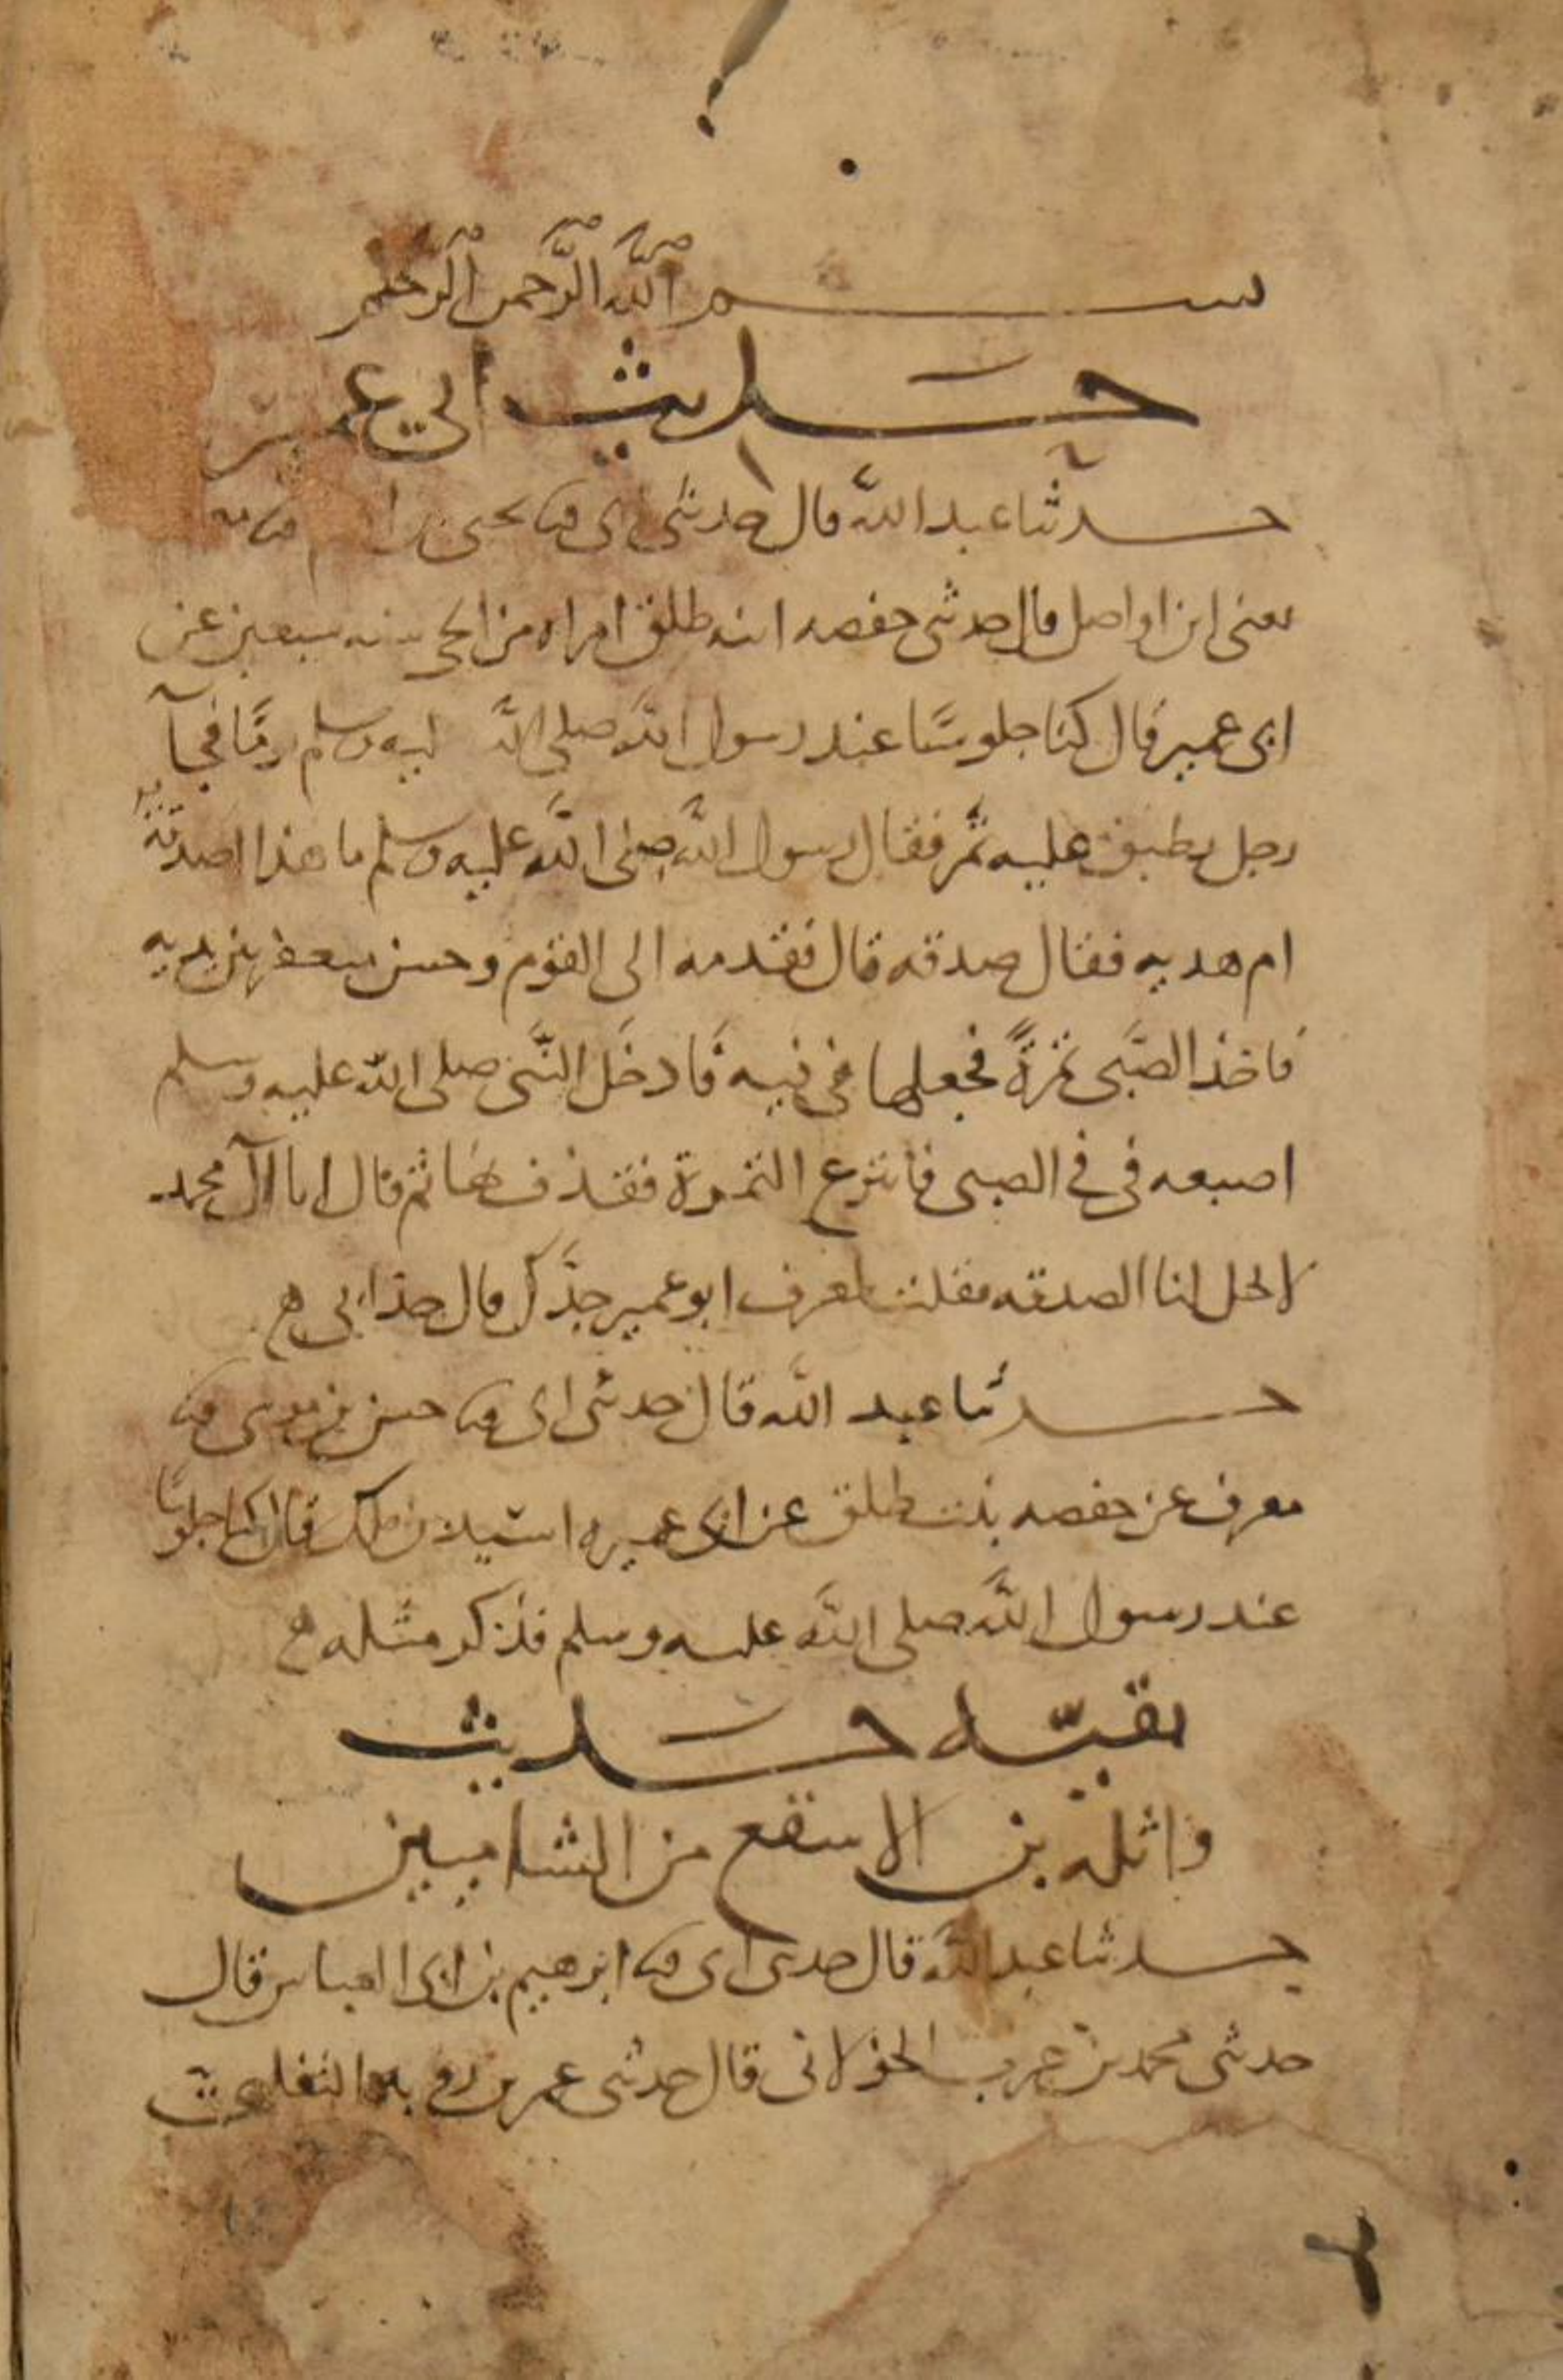 بسم الله الرحمن الرحيم
حديث ابي عمير
حدثنا عبد الله قال حدثني ابي ثنا يحيى بن ادم ثنا
يعني ابن واصل قال حدثتني حفصه ابنه طلق امراه من الحي سنه سبعين عن
ابي عمير قال كنا جلوسًا عند رسول الله صلى الله عليه وسلم يومًا فجآ
رجل بطبق عليه تمر فقال رسول الله صلى الله عليه وسلم ما هذا اصدقة
ام هديه فقال صدقه قال فقدمه الى القوم وحسن يتعفر بين يديه
فاخذ الصَّبي تمرةً فجعلها في فيه فَادخَل النَّبي صلى الله عليه وسلم
اصبعه في في الصبي فانتزع التمرة فقذف بها ثم قال انا آل محمد
لا تحل لنا الصدقه فقلت لمعرف ابو عمير جدَّك قال جد ابي
حدثنا عبد الله قال حدثني ابي ثنا حسن بن موسى ثنا
معرف عن حفصه بنت طلق عن ابي عميره اسيد بن ملك قال كنا جلوسًا
عند رسول الله صلى الله عليه وسلم فذكر مثله
بقيّه حديث
واثله بن الاسقع من الشاميين
حدثنا عبد الله قال حدثني ابي ثنا ابرهيم بن ابي العباس قال
حدثني محمد بن حرب الخولاني قال حدثني عمر بن روبه التغلبي